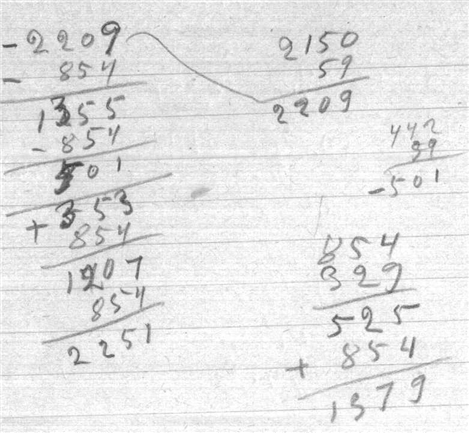 - 2209
- 854
1355
- 854
501
+ 353
854
1207
854
2251
2150
59
2209
442
59
- 501
854
329
525
+ 854
1379